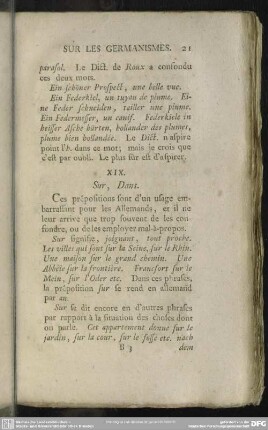 SUR LES GERMANISMES. 21
parasol. Le Dict. de Roux a confondu
ces deux mots.
Ein schöner Prospect, une belle vue.
Ein Federkiel, un tuyau de plume. Ei-
ne Feder schneiden, tailler une plume.
Ein Federmesser, un canif. Federkiele in
heisser Asche härten, hollander des plumes,
plume bien hollandée. Le Dict. n'aspire
point l'h. dans ce mot; mais je crois que
c'est par oubli. Le plus sûr est d'aspirer.
XIX.
Sur, Dans.
Ces prépositions sont d'un usage em-
barrassant pour les Allemands, et il ne
leur arrive que trop souvent de les con-
fondre, ou de les employer mal-à-propos.
Sur signifie, joignant, tout proche.
Les villes qui sont sur la Seine, sur le Rhin.
Une maison sur le grand chemin. Une
Abbaïe sur la frontière. Francfort sur le
Mein, sur l'Oder etc. Dans ces phrases,
la préposition sur se rend en allemand
par an.
Sur se dit encore en d'autres phrases
par rapport à la situation des choses dont
on parle. Cet appartement donne sur le
jardin, sur la cour, sur le fossé etc. nach
B 3 dem